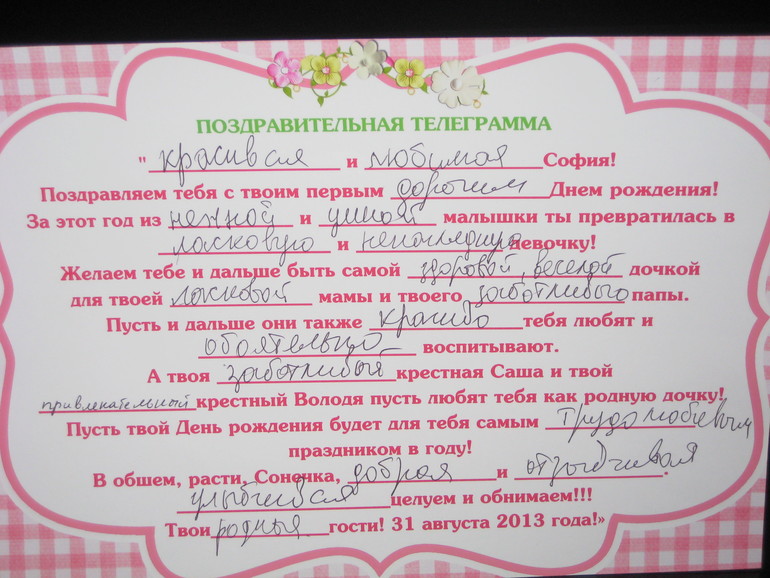 ПОЗДРАВИТЕЛЬНАЯ ТЕЛЕГРАММА
"красивая и любимая София!
Поздравляем тебя с твоим первым дорогим Днем рождения!
За этот год из нежной и умной малышки ты превратилась в
ласковую и ненаглядную девочку!
Желаем тебе и дальше быть самой здоровой, веселой дочкой
для твоей ласковой мамы и твоего заботливого папы.
Пусть и дальше они также красиво тебя любят и
обоятельно воспитывают.
А твоя заботливый крестная Саша и твой
привлекательный крестный Володя пусть любят тебя как родную дочку!
Пусть твой День рождения будет для тебя самым трудолюбивым
праздником в году!
В обшем, расти, Сонечка, добрая и отзывчивая.
улыбчивая целуем и обнимаем!!!
Твои родные гости! 31 августа 2013 года!»